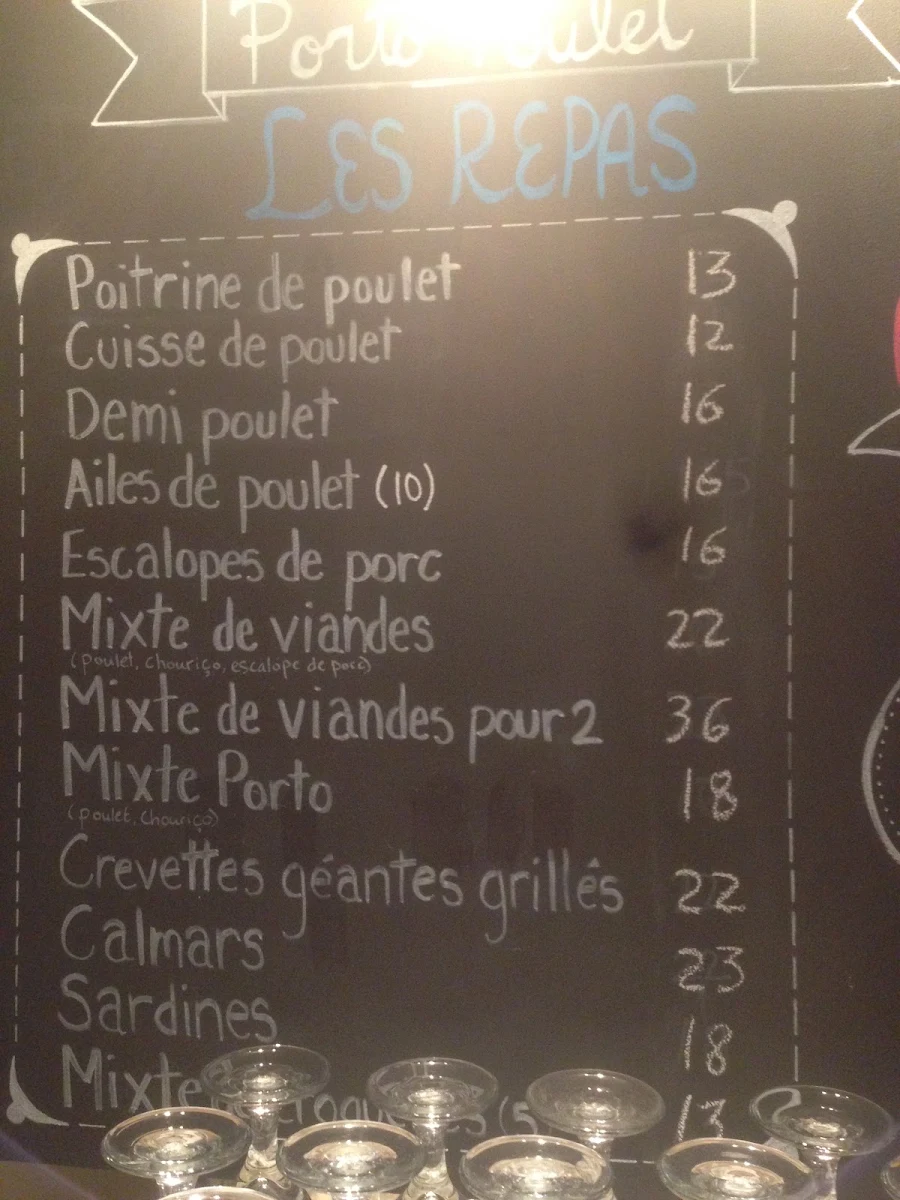 Porto Poulet
LES REPAS
Poitrine de poulet 13
Cuisse de poulet 12
Demi poulet 16
Ailes de poulet (10) 16
Escalopes de porc 16
Mixte de viandes 22
(poulet, chouriço, escalope de porc)
Mixte de viandes pour 2 36
Mixte Porto 18
(poulet, chouriço)
Crevettes géantes grillés 22
Calmars 23
Sardines 18
Mixte (5 13